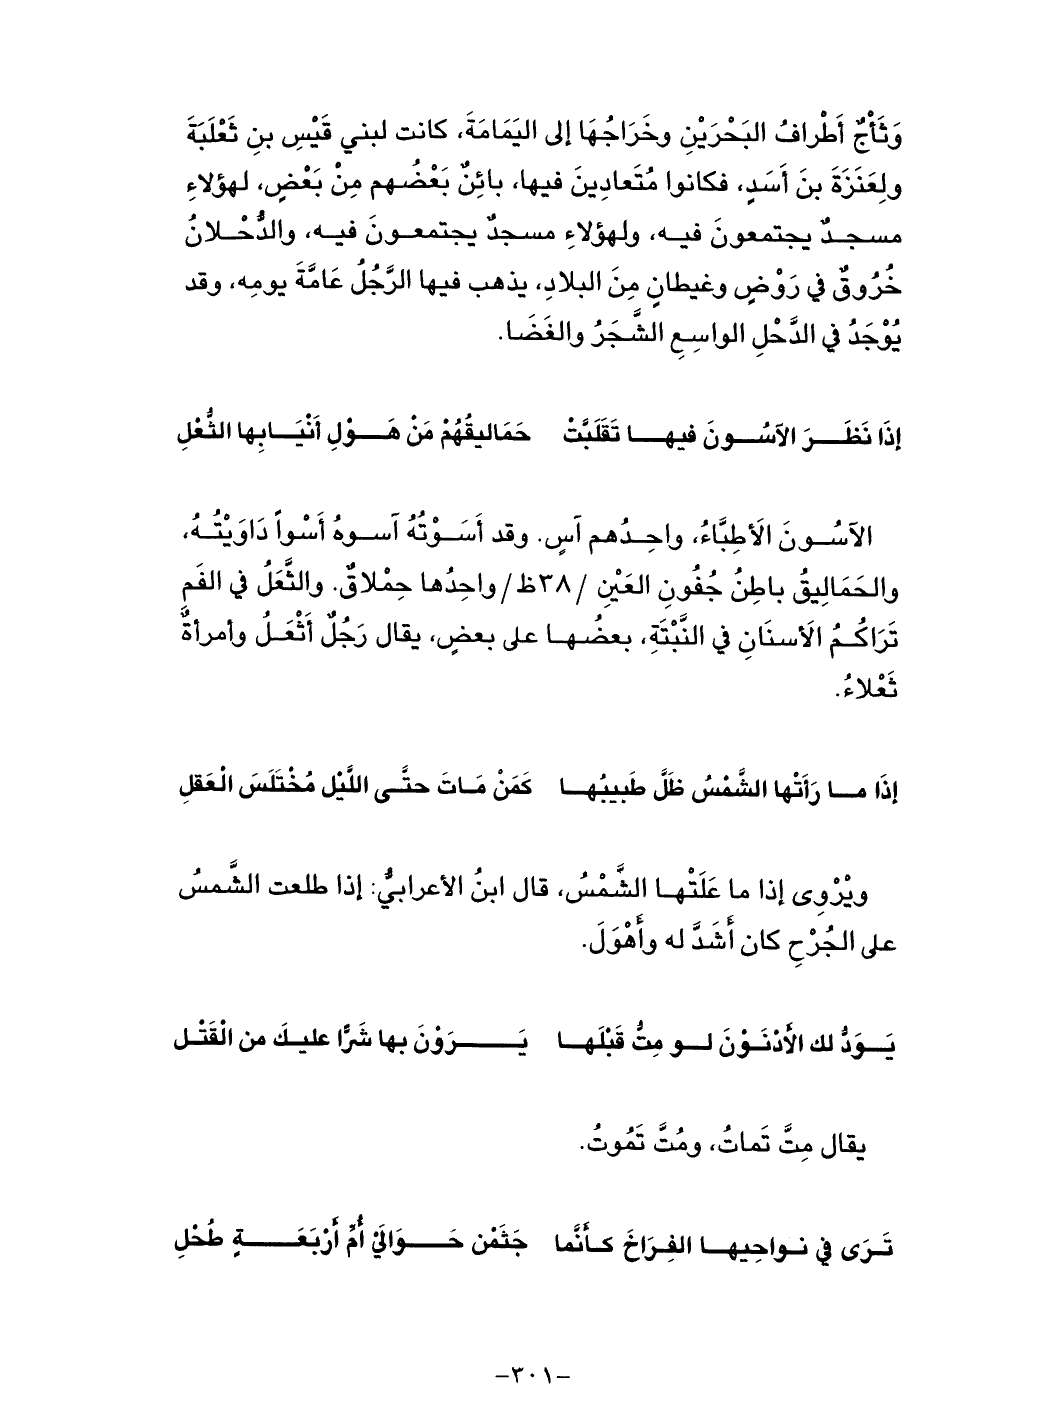 وَثَأْجٌ أَطْرافُ البَحْرَيْنِ وخَرَاجُهَا إلى اليَمَامَةَ، كانت لبني قَيْسِ بنِ ثَعْلَبَةَ
ولِعَنَزَةَ بنَ أَسَدٍ، فكانوا مُتَعادِينَ فيها، بائِنٌ بَعْضُهم مِنْ بَعْضٍ، لهؤلاءِ
مسجدٌ يجتمعونَ فيه، ولهؤلاءِ مسجدٌ يجتمعونَ فيه، والدُّحْلانُ
خُرُوقٌ في رَوْضٍ وغيطانٍ مِنَ البلادِ، يذهب فيها الرَّجُلُ عَامَّةَ يومِه، وقد
يُوْجَدُ في الدَّحْلِ الواسِعِ الشَّجَرُ والغَضَا.
إذَا نَظَرَ الآسُونَ فيها تَقَلَبَّتْ حَمَاليقُهُمْ مَنْ هَوْلِ أنْيَابِها الثُّعْلِ
الآسُونَ الأَطِبَّاءُ، واحِدُهم آسٍ. وقد أَسَوْتُهُ آسوهُ أَسْواً دَاوَيْتُهُ،
والحَمَالِيقُ باطِنُ جُفُونِ العَيْنِ /٣٨ظ/ واحِدُها حِمْلاقٌ. والثَّعَلُ في الفَمِ
تَرَاكُمُ الأَسنَانِ في النَّبْتَةِ، بعضُها على بعضٍ، يقال رَجُلٌ أثْعَلُ وأمرأةٌ
ثَعْلاءُ.
إذَا ما رَأَتْها الشَّمْسُ ظَلَّ طَبيبُها كَمَنْ مَاتَ حتَّى اللَّيْل مُخْتَلَسَ الْعَقلِ
ويُرْوِى إذا ما عَلَتْها الشَّمْسُ، قال ابنُ الأعرابيُّ: إذا طلعت الشَّمسُ
على الجُرْحِ كان أَشَدَّ له وأَهْوَلَ.
يَوَدُّ لك الأَدْنَوْنَ لو مِتُّ قَبْلَها يَرَوْنَ بها شَرًّا عليكَ من الْقَتْل
يقال مِتَّ تَماتُ، ومُتَّ تَمُوتُ.
تَرَى في نواحِيها الفِرَاخَ كأَنَّما جَثَمْن حَوَاليْ أُمِّ أَرْبَعَةٍ طُحْلِ
–٣٠١–